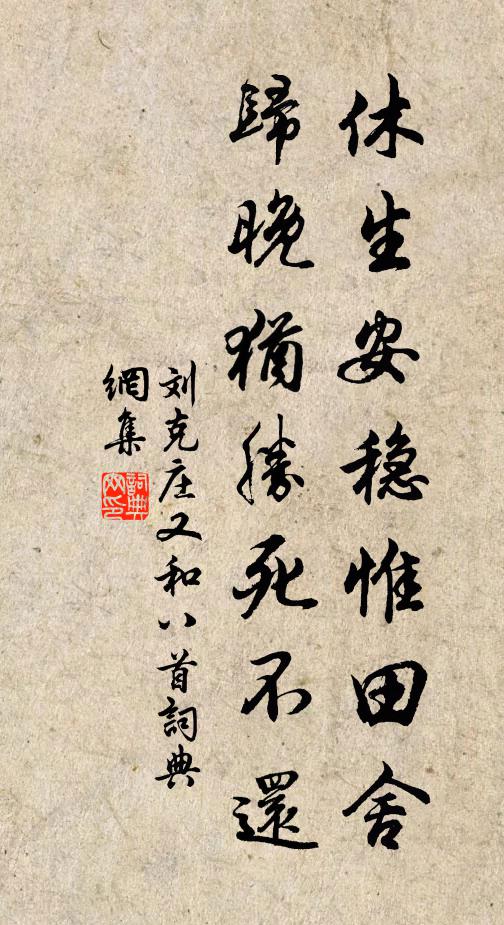 休生安稳惟田舍
歸晚猶勝死不還
刘克庄又和八首詞典
網集
詞典
网印